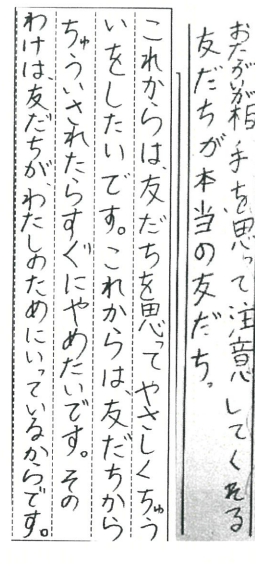 おたがいが相手を思って注意してくれる
友だちが本当の友だち。
これからは、友だちを思ってやさしくちゅう
いをしたいです。これからは、友だちから
ちゅういされたらすぐにやめたいです。その
わけは、友だちが、わたしのためにいっているからです。